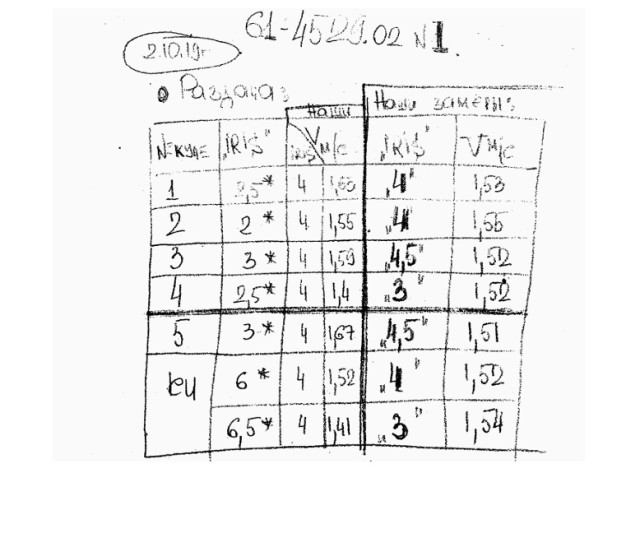 61-4529.02 №1.
2.10.19г
• Раздача:
Наши Наши замеры:
№ купе "IRIS" IRIS V м/с "IRIS" V м/с
1 2,5* 4 1,63 "4" 1,53
2 2* 4 1,55 "4" 1,55
3 3* 4 1,59 "4,5" 1,52
4 2,5* 4 1,4 "3" 1,52
5 3* 4 1,67 "4,5" 1,51
6* 4 1,52 "4" 1,52
6,5* 4 1,41 "3" 1,54